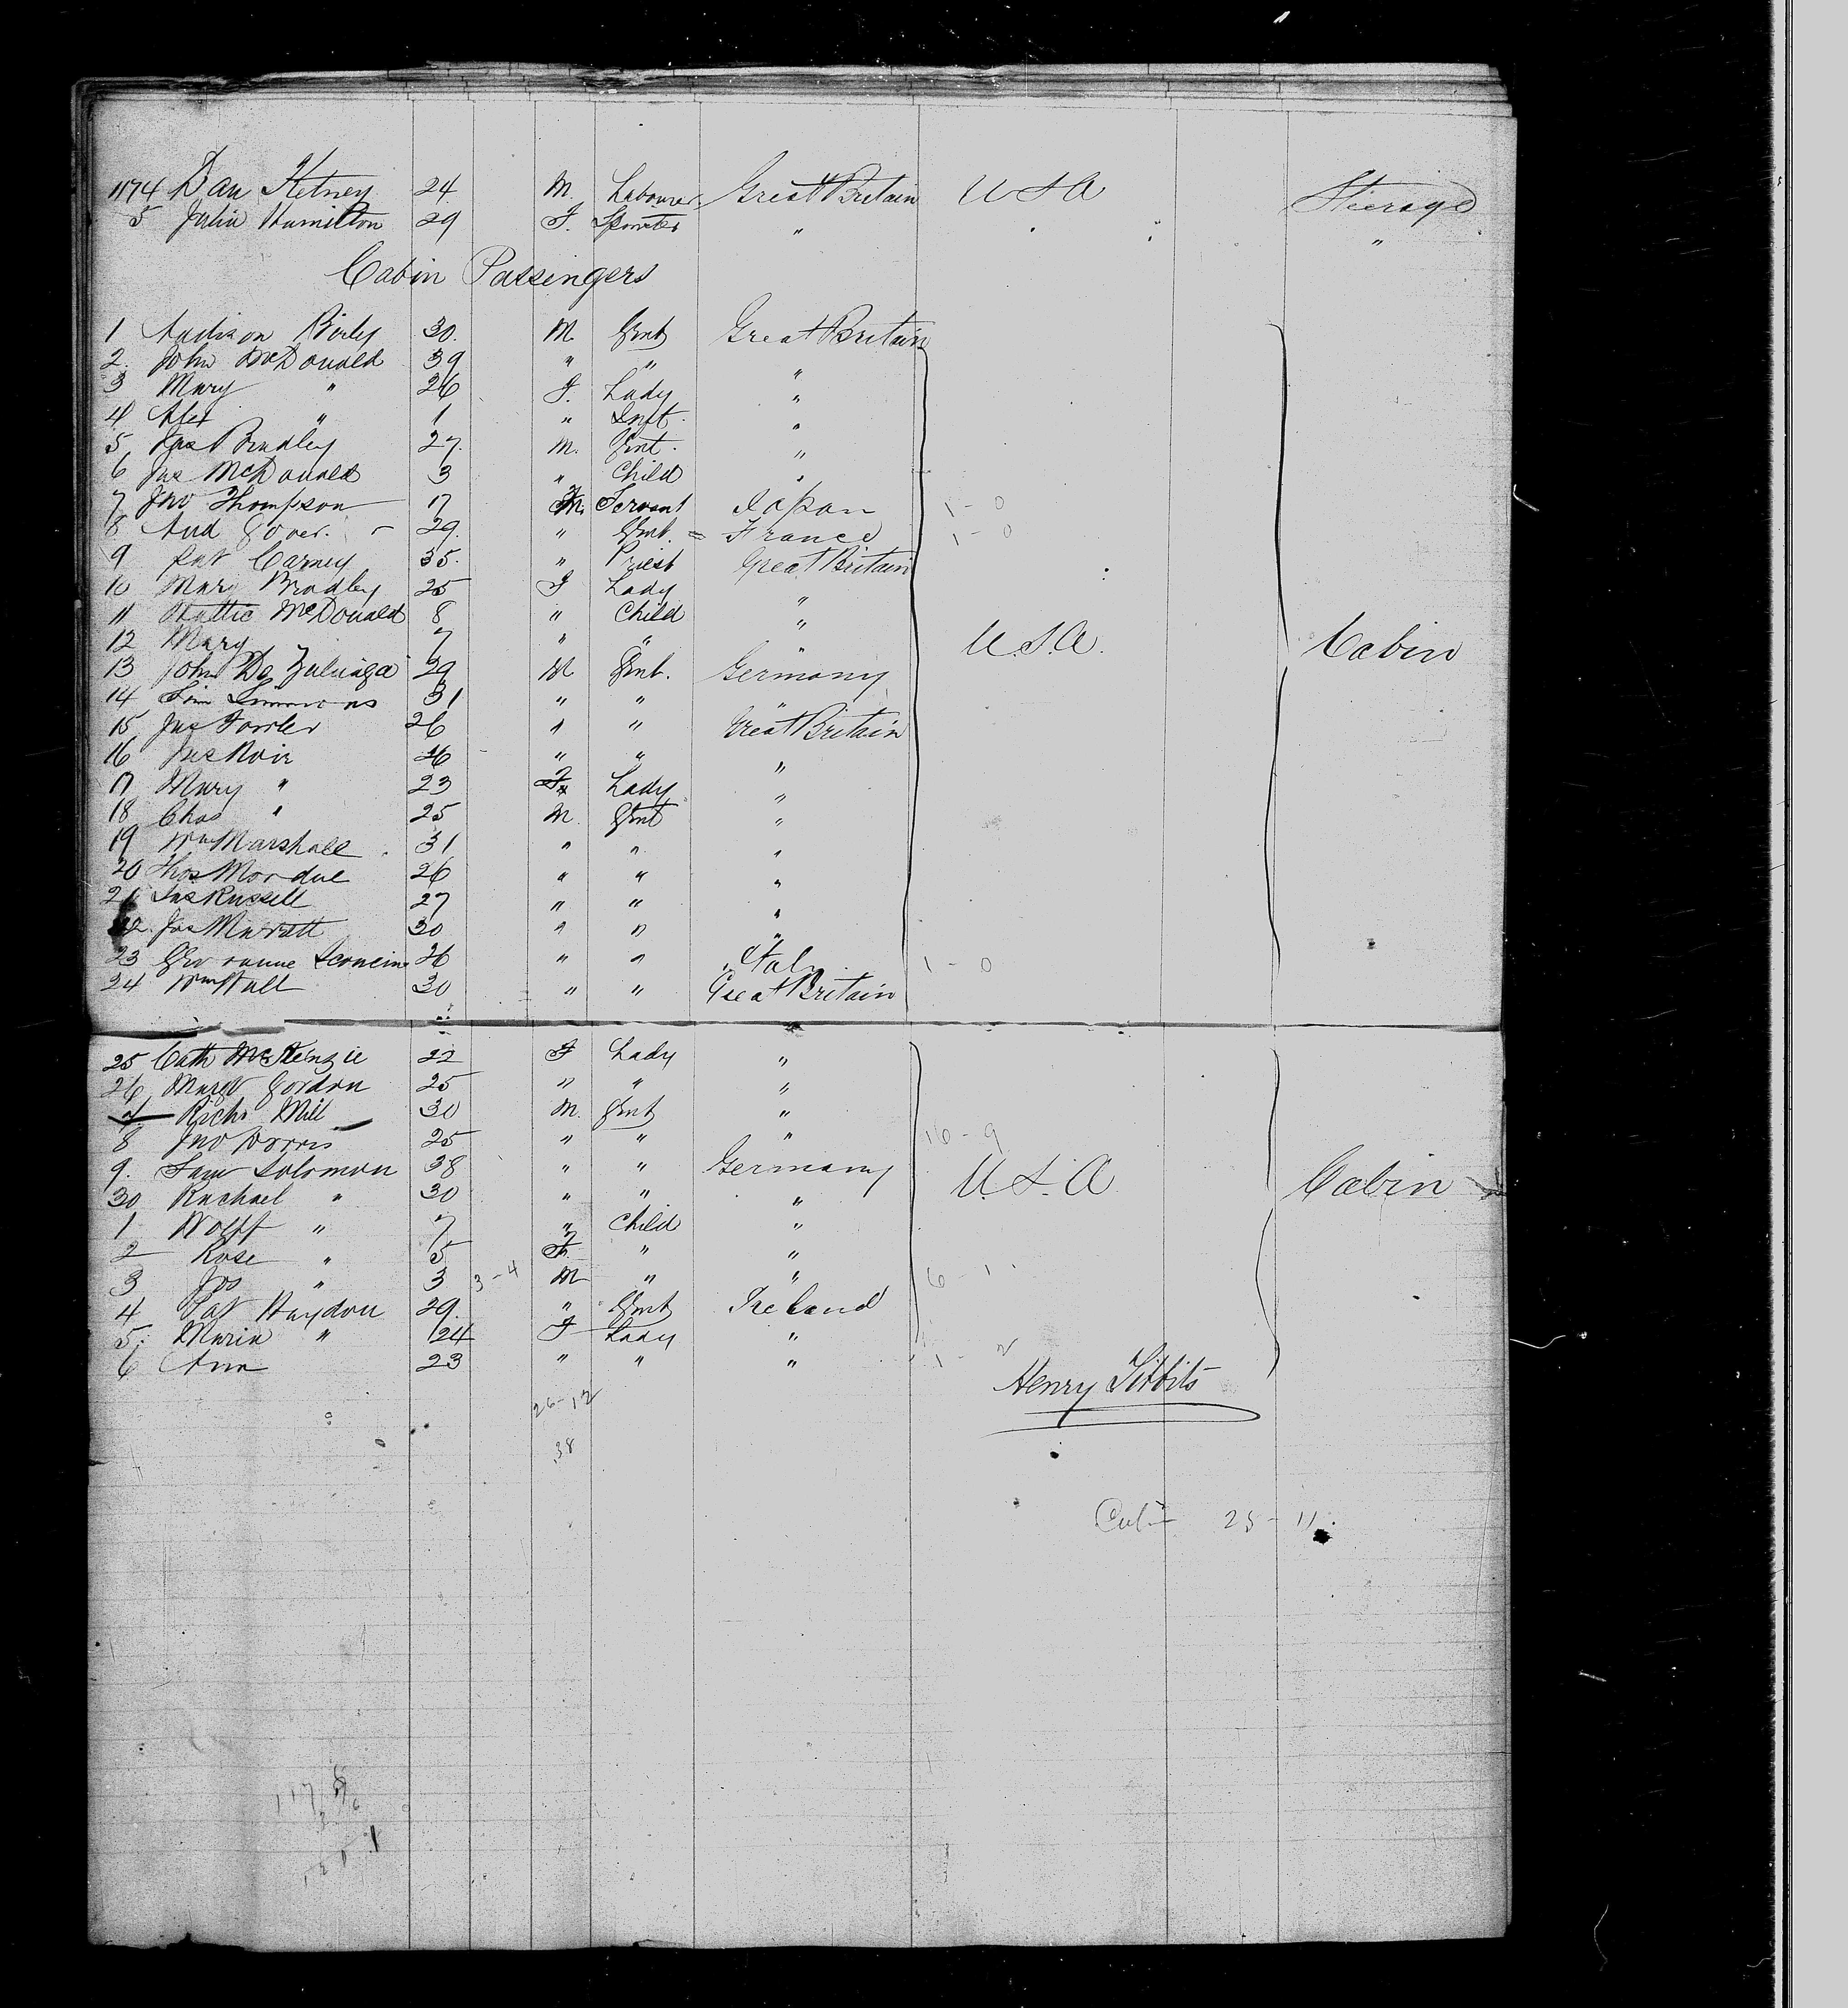 1174 Dan Ketney 24 M. Labourer Great Britain U S A Steerage
5 Julia Hamilton 29 F. Spinster " " "
Cabin Passengers
1 Addison Birly 30. M. Gent Great Britain
2. John McDonald 39 " " "
3 Mary " 26 F. Lady "
4 Alex " 1 " Inft. "
5 Jas Bradley 27. M. Gent. "
6 Jas McDonald 3 " Child "
7 Jno Thompson 17 M. Servant Japan 1 - 0
8 And Gover. 29. " Gent. = France 1 - 0
9 Pat Carney 35. " Priest Great Britain
10 Mary Bradley 25 F Lady "
11 Hattie McDonald 8 " Child "
12 Mary 7 " " " U.S.A. Cabin
13 John De Zuluaga 29 M Gent. Germany
14 Sim Simmons 31 " " "
15 Jas Fowler 26 " " Great Britain
16 Jas Noir 26 " " "
17 Mary " 23 F Lady "
18 Chas " 25 M. Gent "
19 Wm Marshall 31 " " "
20 Thos Mordue 26 " " "
21 Jas Russell 27 " " "
22. Jas Marratt 30 " " "
23 26 " " Italy 1 - 0
24 Wm Hall 30 " " Great Britain
25 Cath McKenzie 22 F Lady "
26 Margt Gordon 25 " " "
7 Richd Mill 30 M. Gent "
8 Jno Norris 25 " " " 16 - 9
9. Sam Solomon 38 " " Germany U.S.A Cabin
30 Rachael " 30 " " "
1 Wolff " 7 " Child "
2 Rose " 5 F " "
3 Jos " 3 3 - 4 M " " 6 - 1
4 Pat Haydon 29. " Gent Ireland
5. Maria " 24 F Lady "
6 Ann 23 " " " 1 - 2
Henry Tibbits
26 - 12
38
Cabin 25 - 11.